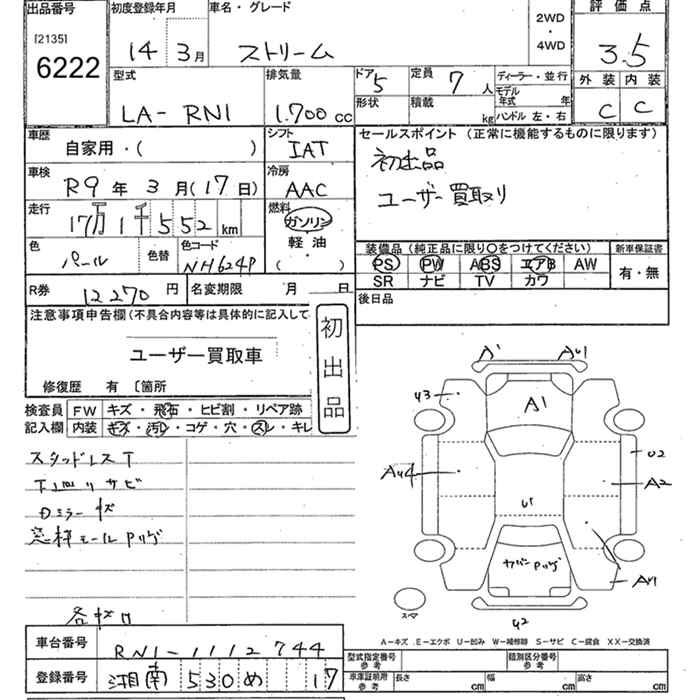 出品番号
[2135]
6222
初度登録年月
14年3月
車名・グレード
ストリーム
2WD
・
4WD
評価点
3.5
外装 内装
C C
型式
LA-RN1
排気量
1.700cc
ドア 5
形状
定員 7人
積載 kg
ディーラー・並行
モデル年式 年
ハンドル 左・右
車歴
自家用・( )
シフト
IAT
セールスポイント(正常に機能するものに限ります)
初出品
ユーザー買取り
車検
R9年3月(17日)
冷房
AAC
走行
17万1千552km
燃料
ガソリン
軽油
( )
色
パール
色替
色コード
NH624P
装備品(純正品に限り○をつけてください)
PS PW ABS エアB AW
SR ナビ TV カワ
新車保証書
有・無
R券
12270円
名変期限 月 日
後日品
注意事項申告欄(不具合内容等は具体的に記入して
ユーザー買取車
修復歴 有 〔箇所
初出品
検査員 FW キズ・飛石・ヒビ割・リペア跡
記入欄 内装 キズ・汚レ・コゲ・穴・スレ・キレ
スタッドレスT
サビ
Dミラーキズ
窓枠モールPハゲ
各キズ凹
A1
U3
A1
U2
A2
U1
カバーPハゲ
スマ
U2
A-キズ E-エクボ U-凹み W-補修跡 S-サビ C-腐食 XX-交換済
車台番号
RN1-1112744
登録番号
湘南530め17
型式指定番号
参考
類別区分番号
参考
車庫証明用
参考
長さ cm
幅 cm
高さ cm